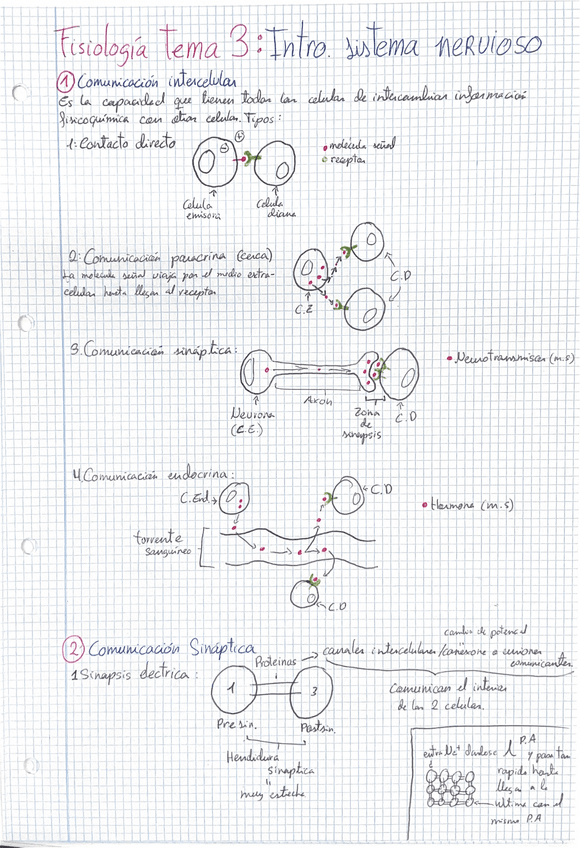 Fisiología tema 3: Intro. sistema nervioso
1 Comunicación intercelular
Es la capacidad que tienen todas las celulas de intercambiar información
fisicoquímica con otras celulas. Tipos:
1: Contacto directo
molécula señal
receptor
Celula
emisora
Celula
diana
2: Comunicación paracrina (cerca)
La molecula señal viaja por el medio extra-
celular hasta llegar al receptor
C.E
C.D
3. Comunicación sináptica:
Neurotransmisor (m.s)
Axon
Neurona
(C.E.)
Zona
de
sinapsis
C.D
4. Comunicación endocrina:
C.End.
C.D
Hormona (m.s)
torrente
sanguíneo
C.D
2 Comunicación Sináptica
cambio de potencial
Proteinas → canales intercelulares/conexone o uniones
comunicantes.
1 Sinapsis électrica:
1
3
Comunican el interior
de las 2 celulas.
Presin.
Postsin.
Hendidura
sinaptica
"
muy estrecha
P.A
entra Na+ dandose y pasa tan
rapido hasta
llegar a la
ultima con el
mismo P.A